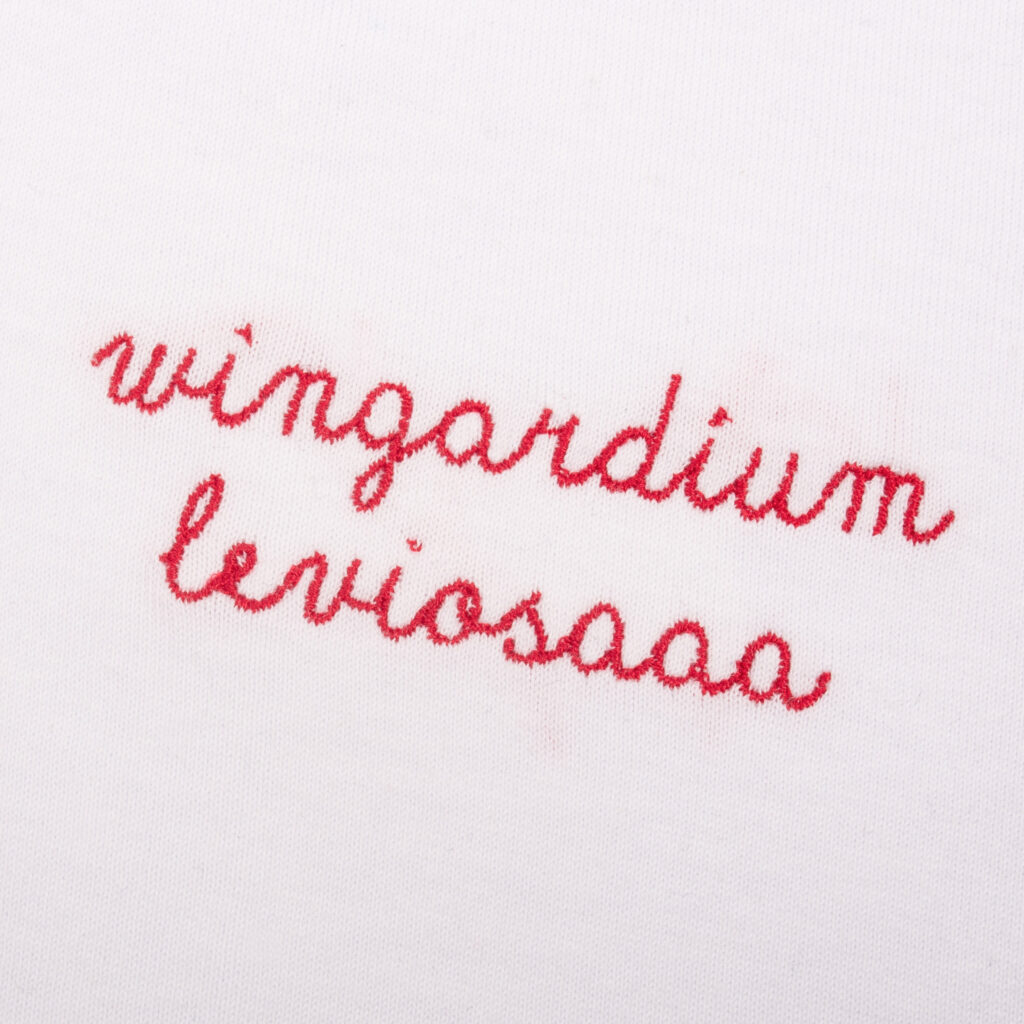 wingardium
leviosaaa